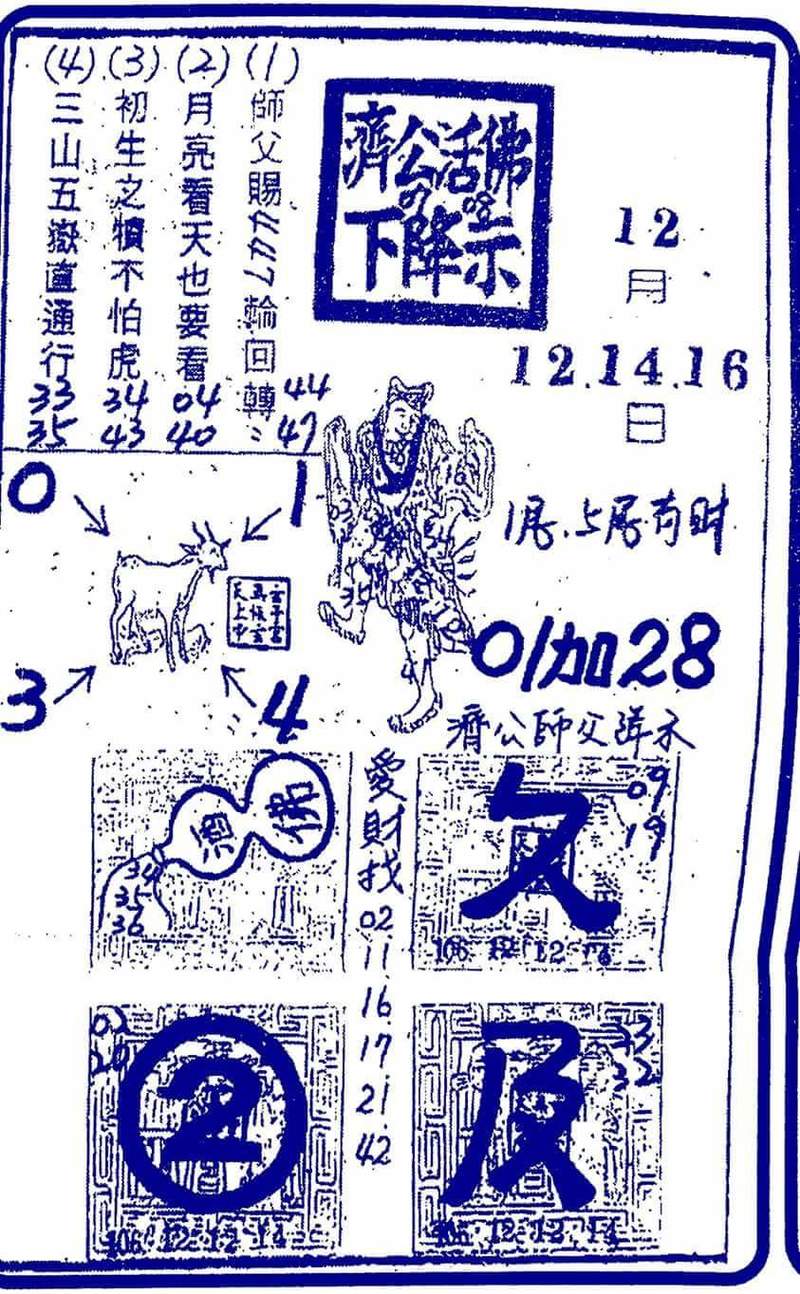 濟公活佛
下降示
12
月
12.14.16
日
(1)
師父賜 輪回轉
44
47
(2)
月亮看天也要看
04
40
(3)
初生之犢不怕虎
34
43
(4)
三山五嶽直通行
33
35
0
1
3
4
1尾.5尾有財
01加28
濟公師父降示
佛
酒
34
35
36
愛財找
02
11
16
17
21
42
09
19
106 12 12 16
02
20
2
106 12 12 14
反
33
32
106 12 12 14